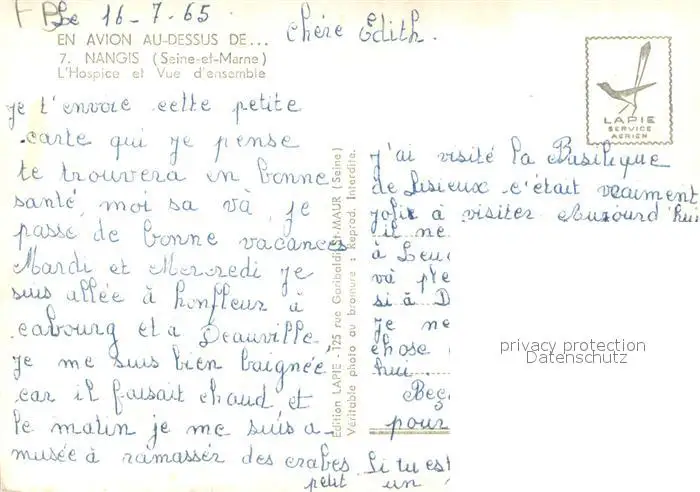 Le 16-7-65
EN AVION AU-DESSUS DE...
7. NANGIS (Seine-et-Marne)
L'Hospice et Vue d'ensemble
Chére Edith.
LAPIE
SERVICE
AERIEN
je t'envoie cette petite
carte qui je pense
te trouvera en bonne
santé, moi sa và, je
passe de bonne vacances
Mardi et Mercredi je
suis allée à honfleur à
cabourg et a Deauville,
je me suis bien baignée,
car il faisait chaud et
le matin je me suis a-
musée à ramasser des crabes.
petit
Edition LAPIE - 125 rue Garibaldi, St-MAUR (Seine)
Véritable photo au bromure : Reprod. Interdite.
j'ai visité la Basilique
de Lisieux c'était vraiment
jolie à visiter Aujourd'hui
il ne
à
và
si à D
je ne
chose
hui.
pour
Si tu es
un
privacy protection
Datenschutz